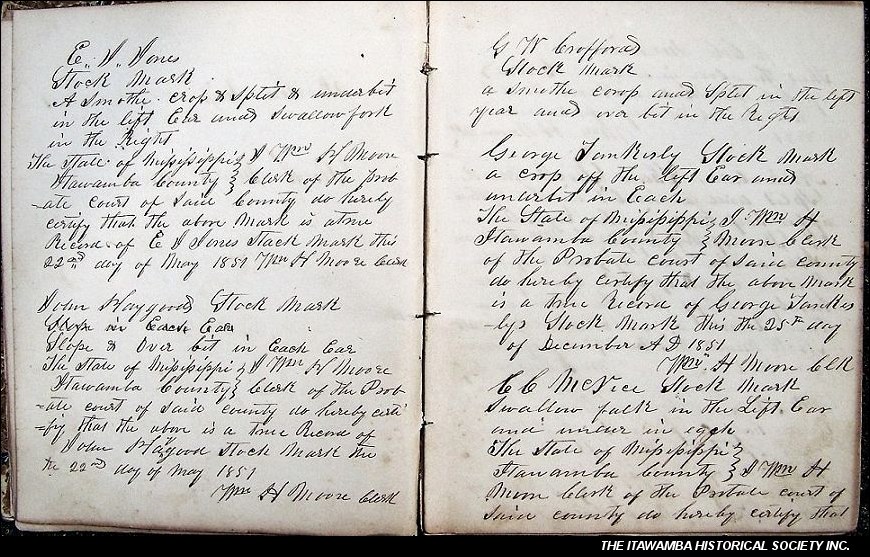 E. D. Jones
Stock Mark
A Smothe crop & Split & underbit
in the lift Ear and Swallowfork
in the Right
The State of Mississippi } I Wm H Moore
Itawamba County } Clerk of the prob
-ate court of Said County do hereby
certify that the above Mark is atrue
Record of E D Jones Stock Mark this
22nd day of May 1851 Wm H Moore Clerk
John Haygoods Stock Mark
Slope in Each Ear
Slope & Over bit in Each Ear
The State of Mississippi } I Wm H Moore
Itawamba County } Clerk of the Prob
-ate court of Said county do hereby certi
-fy that the above is a true Record of
John Haygood Stock Mark the
the 22nd day of May 1851
Wm H Moore Clerk
G W Crofford
Stock Mark
a Smothe corop and Split in the left
year and over bit in the Rights
George Tankersly Stock Mark
a crop off the left Ear and
underbit in Each
The State of Mississippi } I Wm H
Itawamba County } Moore Clerk
of the Probate court of Said county
do hereby certify that the above Mark
is a true Record of George Tankes
-lys Stock Mark this the 25th day
of December A D 1851
Wm H Moore Clk
C C McVice Stock Mark
Swallow falk in the Lift Ear
and in
The State of Mississippi }
Itawamba County } I Wm H
Moore Clerk of the Probate court of
Said county do hereby certify that
THE ITAWAMBA HISTORICAL SOCIETY INC.